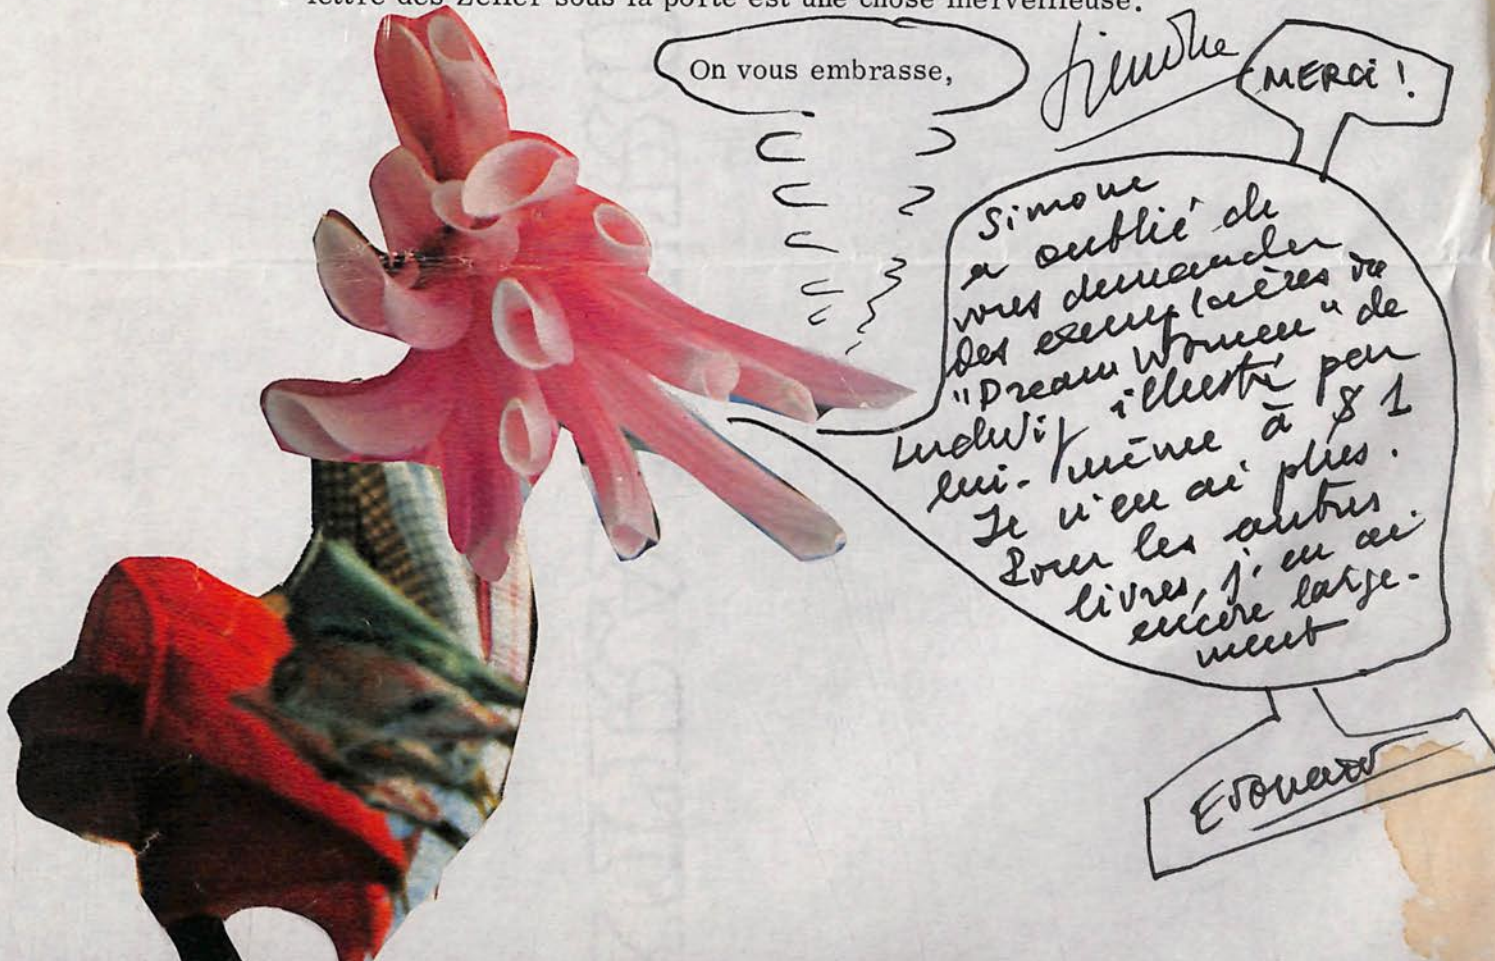 lettre des Zeller sous la porte est une chose merveilleuse.
On vous embrasse,
MERCI !
Simone
a oublié de
vous demander
des exemplaires de
"Dream Women" de
Ludwig illustré par
lui-même à $ 1
Je n'en ai plus.
Pour les autres
livres, j'en ai
encore large-
ment
Edouard